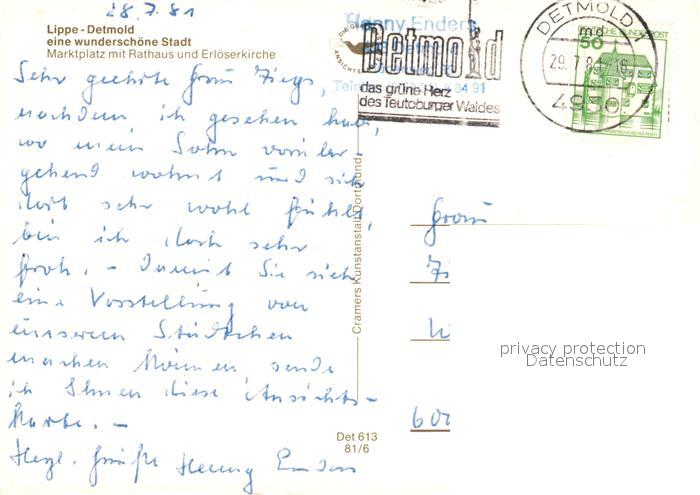 28.7.81
Lippe - Detmold
eine wunderschöne Stadt
Marktplatz mit Rathaus und Erlöserkirche
Sehr geehrte Frau
nachdem ich gesehen habe,
wo mein Sohn vorüber-
gehend wohnt und sich
dort sehr wohl fühlt,
bin ich doch sehr
froh. - Damit Sie sich
eine Vorstellung von
unserem Städtchen
machen können, sende
ich Ihnen diese Ansichts-
karte. -
Herzl. Grüße Henny Enders
Henny Enders
84 91
Detmold
das grüne Herz
des Teutoburger Waldes
DETMOLD 1
md
29.7.81-16
4930
50
DEUTSCHE BUNDESPOST
Cramers Kunstanstalt, Dortmund
Frau
600
Det 613
81/6
privacy protection
Datenschutz